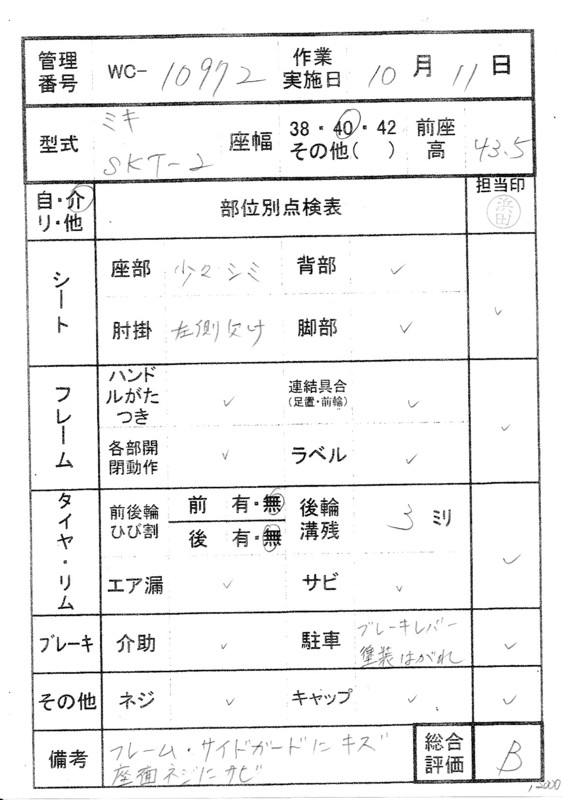 管理番号 WC- 10972 作業実施日 10月11日
型式 ミキ SKT-2 座幅 38・40・42 その他( ) 前座高 43.5
自・介・リ・他 部位別点検表 担当印 浜田
シート 座部 少々シミ 背部 ✓ ✓
肘掛 左側欠け 脚部 ✓
フレーム ハンドルがたつき ✓ 連結具合(足置・前輪) ✓ ✓
各部開閉動作 ✓ ラベル ✓
タイヤ・リム 前後輪ひび割 前 有・無 後輪溝残 3 ミリ ✓
後 有・無
エア漏 ✓ サビ ✓
ブレーキ 介助 ✓ 駐車 ブレーキレバー塗装はがれ ✓
その他 ネジ ✓ キャップ ✓ ✓
備考 フレーム・サイドガードにキズ 総合評価 B
座面ネジにサビ